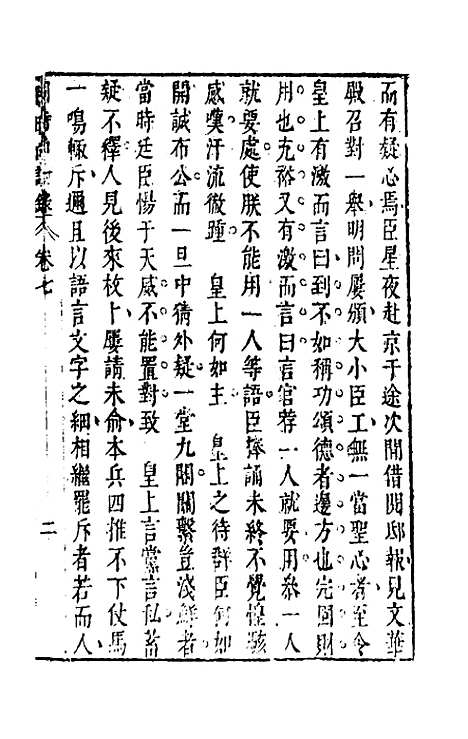 而有疑心焉臣星夜赴京于途次閒借閱邸報見文華
殿召對一舉明問屢頒大小臣工無一當聖心者至令
皇上有激而言曰到不如稱功頌德者邊方也完固則
用也充裕又有激而言曰言官荐一人就要用叅一人
就要處使朕不能用一人等語臣捧誦未終不覺惶駭
感嘆汗流微踵　皇上何如主　皇上之待群臣何如
開誠布公而一旦中猜外疑一堂九閽關繫豈淺鮮者
當時廷臣惕于天威不能置對致　皇上言黨言私畜
疑不釋人見後來枚卜屢請未俞本兵四推不下仗馬
一鳴輙斥邇且以語言文字之細相繼罷斥者若而人
卷七
二